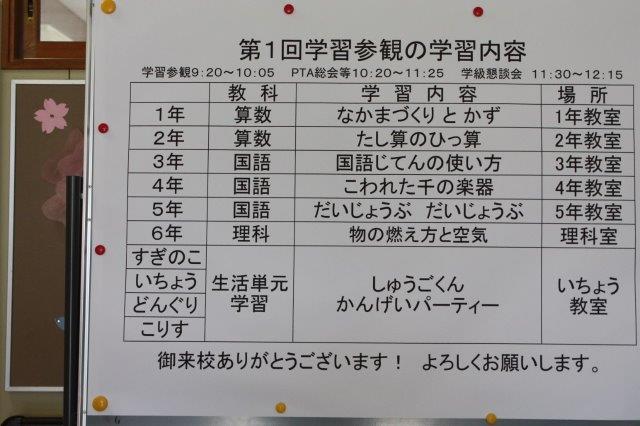 第1回学習参観の学習内容
学習参観9:20～10:05 PTA総会等10:20～11:25 学級懇談会 11:30～12:15
教科 学習内容 場所
1年 算数 なかまづくり と かず 1年教室
2年 算数 たし算のひっ算 2年教室
3年 国語 国語じてんの使い方 3年教室
4年 国語 こわれた千の楽器 4年教室
5年 国語 だいじょうぶ だいじょうぶ 5年教室
6年 理科 物の燃え方と空気 理科室
すぎのこ
いちょう
どんぐり
こりす
生活単元
学習
しゅうごくん
かんげいパーティー
いちょう
教室
御来校ありがとうございます! よろしくお願いします。